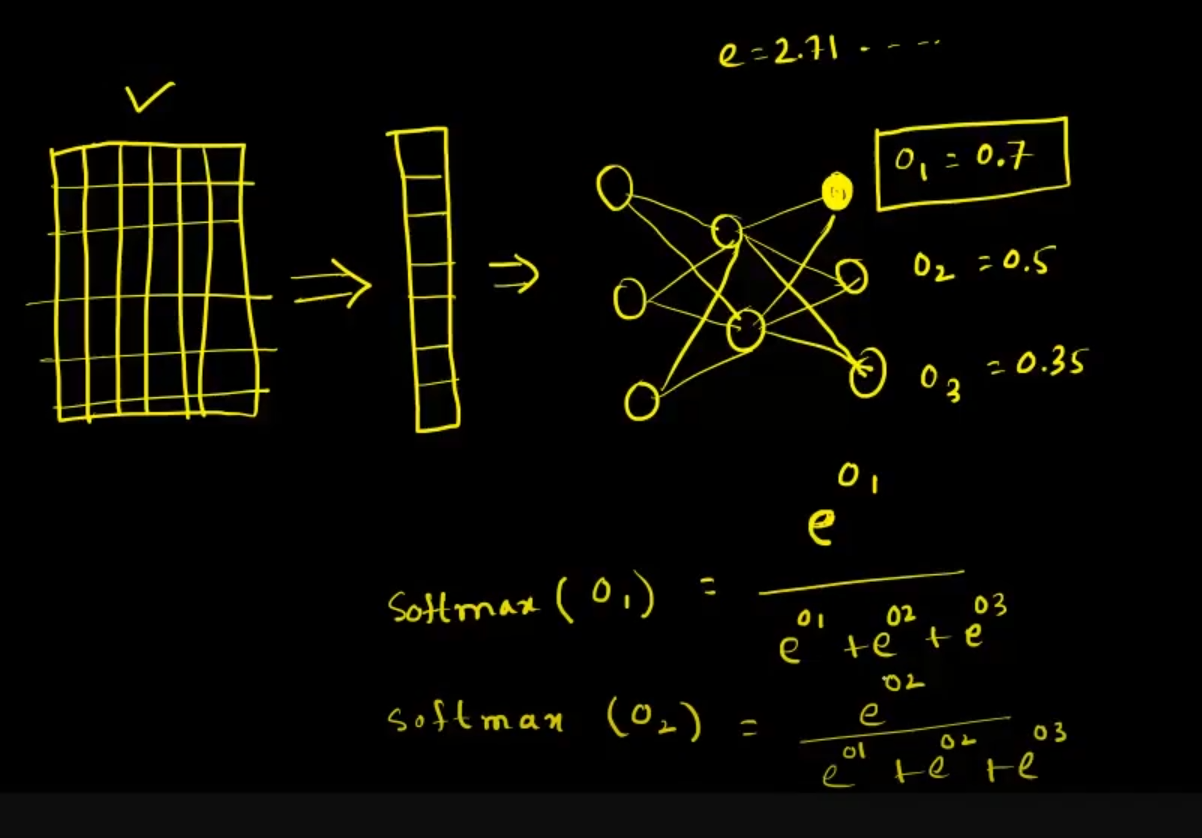 e = 2.71 . - - - ..
O₁ = 0.7
O₂ = 0.5
O₃ = 0.35
softmax (O₁) = e^O₁ / e^O₁ + e^O₂ + e^O₃
softmax (O₂) = e^O₂ / e^O₁ + e^O₂ + e^O₃